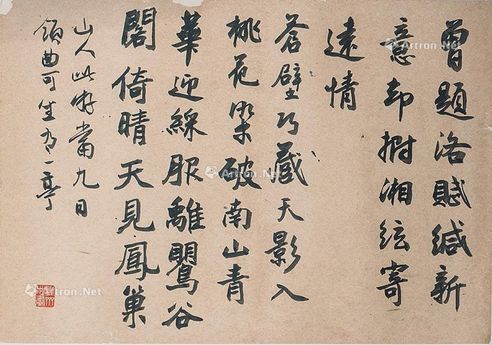 曾題洛賦緘新
意却拊湘絃寄
遠情
蒼壁巧藏天影入
桃花破南山青
華迎綵服離鸎谷
閣倚晴天見鳳巢
山人此好當九日
領曲可一亭
Artron.Net
Artron.Net
Artron.Net
Artron.Net